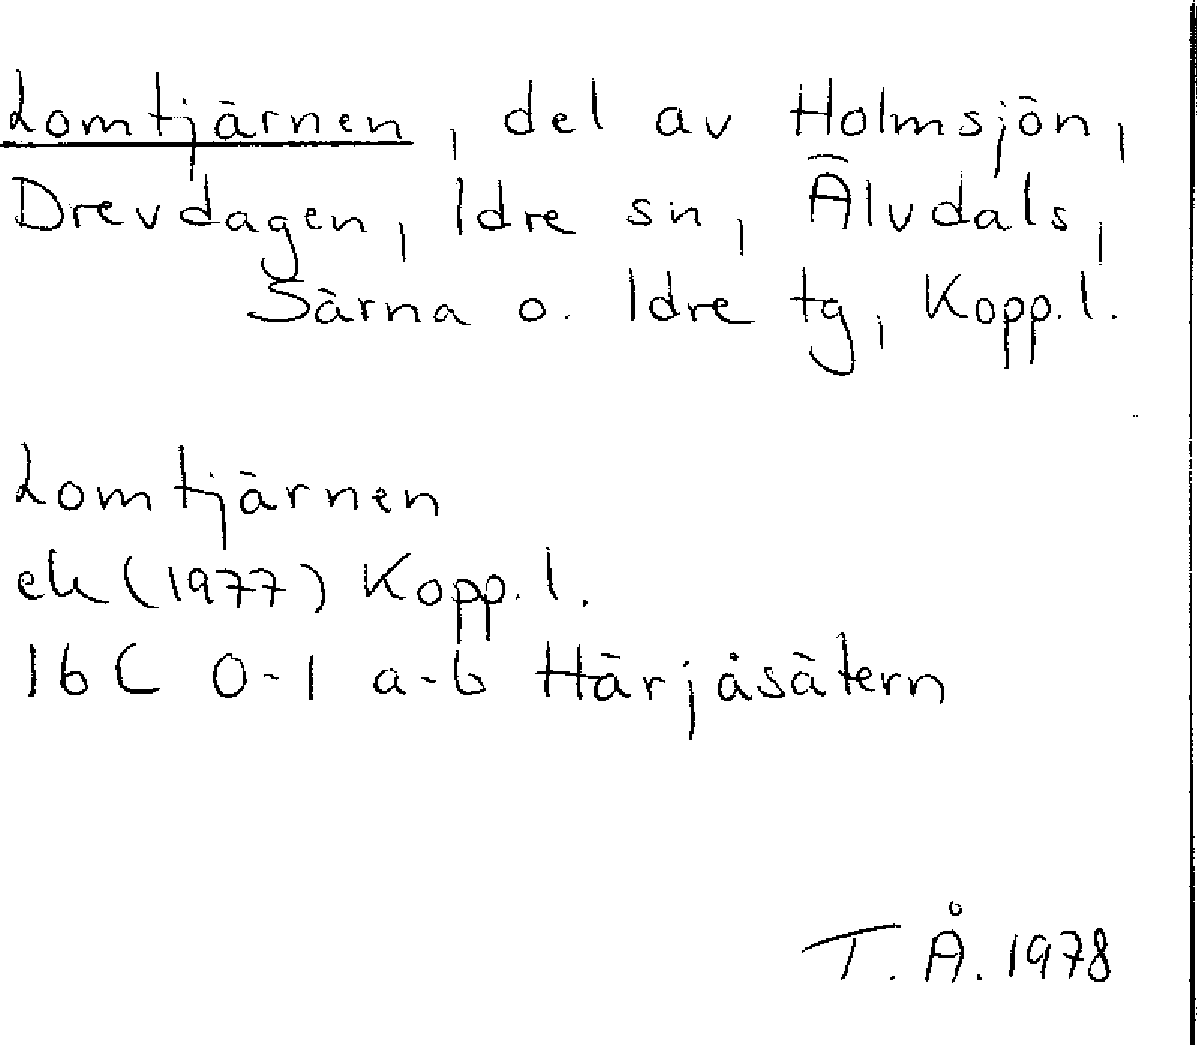 Lomtjärnen, del av Holmsjön,
Drevdagen, Idre sn, Älvdals,
Särna o. Idre tg, Kopp.l.
Lomtjärnen
ek (1977) Kopp.l.
16C 0-1 a-b Härjåsätern
T.Å. 1978